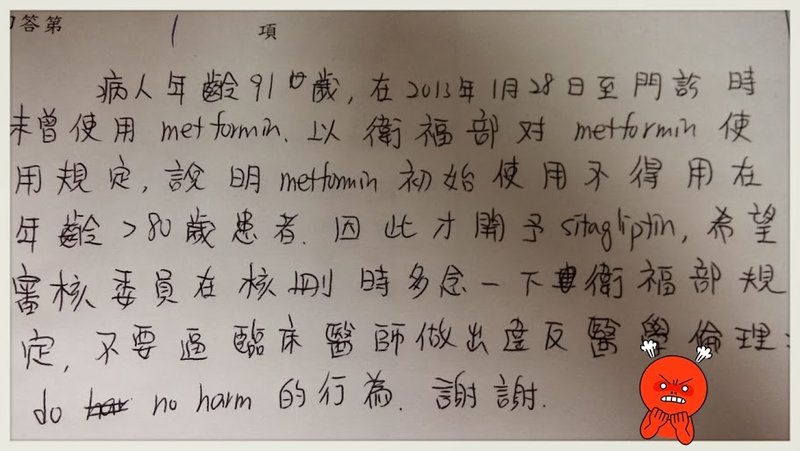 答第 1 項
病人年齡91歲,在2013年1月28日至門診時
未曾使用 metformin. 以衛福部对 metformin 使
用規定,說明metformin初始使用不得用在
年齡>80歲患者.因此才開予sitagliptin,希望
審核委員在核刪時多念一下衛福部規
定,不要逼臨床醫師做出違反醫學倫理:
do no harm 的行為. 謝謝.